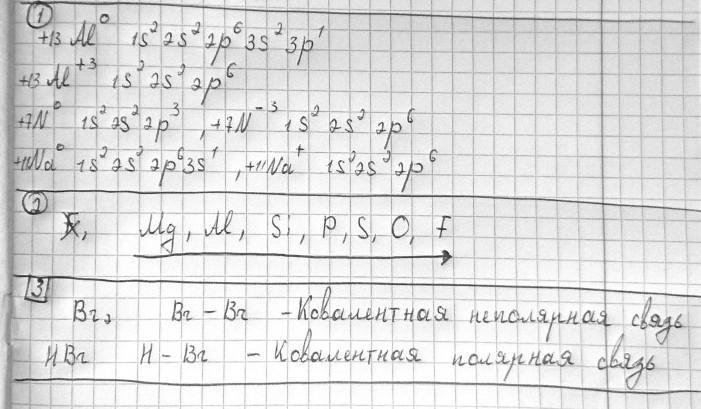 1
+13 Al⁰ 1s² 2s² 2p⁶ 3s² 3p¹
+13 Al⁺³ 1s² 2s² 2p⁶
+7N⁰ 1s² 2s² 2p³, +7N⁻³ 1s² 2s² 2p⁶
+11Na⁰ 1s² 2s² 2p⁶ 3s¹, +11Na⁺ 1s² 2s² 2p⁶
2
Mg, Al, Si, P, S, O, F
3
Br₂ Br - Br - Ковалентная неполярная связь
HBr H - Br - Ковалентная полярная связь